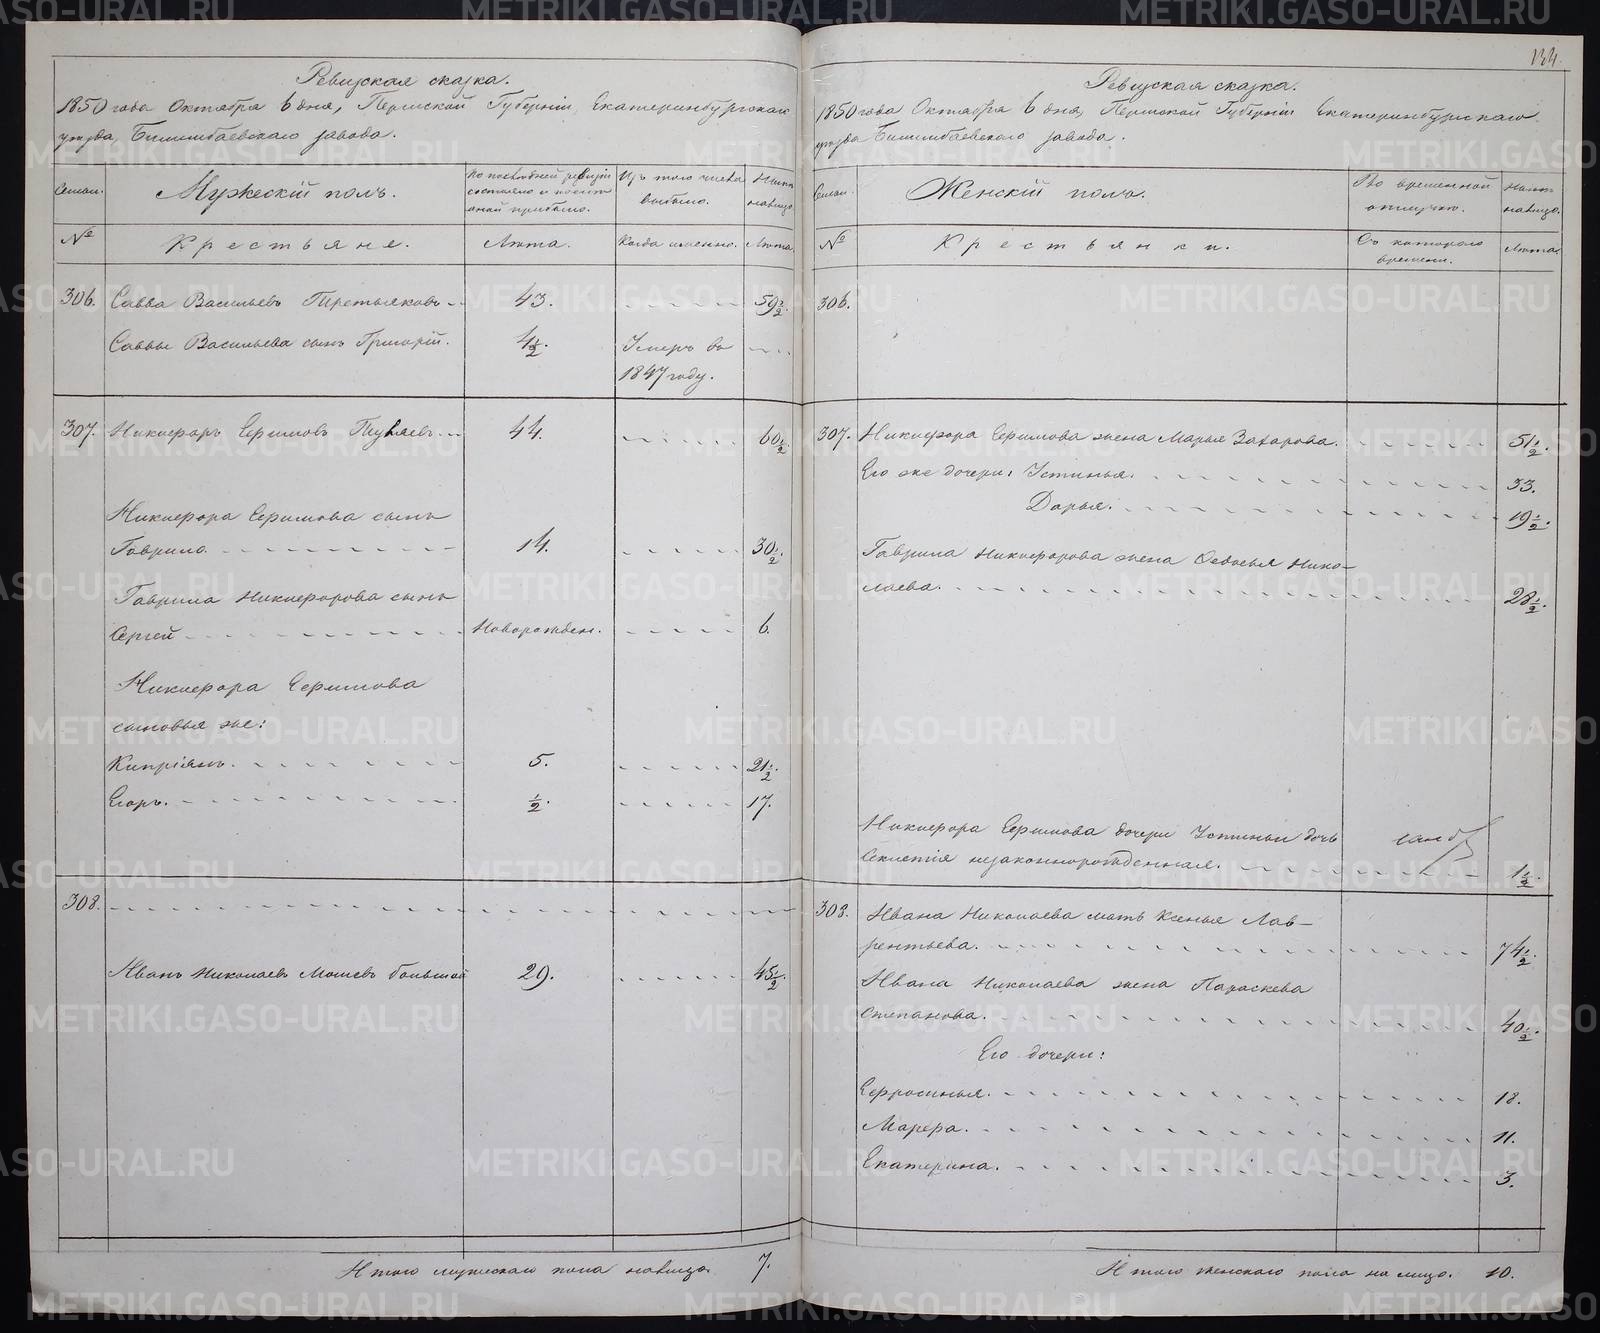 134.
Ревизская сказка.
1850 года Октября 6 дня, Пермской Губернiи, Екатеринбургскаго
уезда, Билимбаевскаго завода.
Семьи.
Мужескiй полъ.
По последней ревизiи
состояло и после
оной прибыло.
Изъ того числа
выбыло.
Ныне
на лицо.
№
Крестьяне.
Лета.
Когда именно.
Лета.
306. Савва Васильевъ Третьяковъ 43. 59 1/2
Саввы Васильева сынъ Григорiй. 4 1/2. Умеръ въ
1847 году.
307. Никифоръ Ефимовъ 44. 60 1/2
Никифора Ефимова сынъ
Гаврило. 14. 30 1/2.
Гаврила Никифорова сынъ
Сергей Новорожден. 6.
Никифора Ефимова
сыновья же:
Кипрiянъ. 5. 21 1/2.
Егоръ. 1/2. 17.
308.
Иванъ Николаевъ Мошевъ большой 29. 45 1/2.
Итого мужескаго пола на лицо. 7.
Ревизская сказка.
1850 года Октября 6 дня, Пермской Губернiи Екатеринбургскаго
уезда Билимбаевскаго завода.
Семьи.
Женскiй полъ.
Во временной
отлучке.
Ныне
на лицо.
№
Крестьянки.
Съ котораго
времени.
Лета.
306.
307. Никифора Ефимова жена Марья Захарова. 51 1/2.
Его же дочери: Устинья. 33.
Дарья. 19 1/2.
Гаврила Никифорова жена Федосья Нико-
лаева. 28 1/2.
Никифора Ефимова дочери Устиньи дочь
незаконнорожденная. 1 1/2.
308. Ивана Николаева мать Ксенья Лав-
рентьева. 74 1/2.
Ивана Николаева жена Параскева
Степанова. 40 1/2.
Его дочери:
Ефросинья. 18.
Марфа. 11.
Екатерина. 3.
Итого женскаго пола на лицо. 10.
METRIKI.GASO-URAL.RU